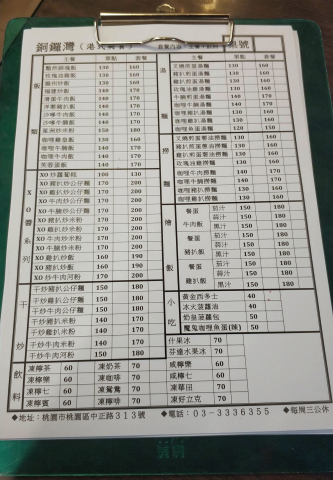 銅鑼灣(港式美食) 套餐內容:主餐+飲料 桌號
主餐 單點 套餐 主餐 單點 套餐
飯 麵
揚州炒飯 130 160
福建炒飯 140 170
薯蛋牛肉飯 140 170
洋蔥豬扒飯 140 170
沙嗲牛肉飯 140 170
沙嗲牛腩飯 140 170
星洲炒米粉 150 180
咖哩雞皇飯 130 160
咖哩牛肉飯 140 170
咖哩牛腩飯 140 170
芙蓉蛋飯 140 170
XO醬系列
XO炒蘿蔔糕 100 130
XO豬扒炒公仔麵 170 200
XO雞扒炒公仔麵 170 200
XO牛肉炒公仔麵 170 200
XO牛腩炒公仔麵 170 200
XO豬扒炒米粉 170 200
XO雞扒炒米粉 170 200
XO牛肉炒米粉 170 200
XO牛腩炒米粉 170 200
XO雞扒炒飯 160 190
XO豬扒炒飯 160 190
XO牛肉炒河粉 170 200
干炒
干炒豬扒公仔麵 150 180
干炒雞扒公仔麵 150 180
干炒牛肉公仔麵 150 180
干炒豬扒米粉 140 170
干炒雞扒米粉 140 170
干炒牛肉米粉 140 170
干炒牛肉河粉 150 180
湯麵
叉燒煎蛋湯麵 130 160
豬扒煎蛋湯麵 130 160
雞扒煎蛋湯麵 130 160
玫瑰油雞湯麵 130 160
牛腩煎蛋湯麵 140 170
咖哩牛腩湯麵 140 170
咖哩豬扒湯麵 130 160
咖哩雞扒湯麵 130 160
咖哩魚蛋湯麵 120 150
撈麵
叉燒煎蛋蔥油撈麵 130 160
豬扒煎蛋蔥油撈麵 130 160
雞扒煎蛋蔥油撈麵 130 160
玫瑰油雞撈麵 130 160
咖哩牛肉撈麵 140 170
咖哩牛腩撈麵 140 170
咖哩豬扒撈麵 130 160
咖哩雞扒撈麵 130 160
燴飯
餐蛋牛肉飯 茄汁 150 180
蒜汁 150 180
黑汁 150 180
餐蛋豬扒飯 茄汁 150 180
蒜汁 150 180
黑汁 150 180
餐蛋雞扒飯 茄汁 150 180
蒜汁 150 180
黑汁 150 180
小吃
黃金西多士 40
冰火菠蘿油 40
奶皇菠蘿包 50
魔鬼咖哩魚蛋(辣) 50
飲料
什果冰 70
芬達水果冰 70
凍檸茶 60 凍奶茶 70 咸檸樂 60
凍檸樂 60 凍咖啡 70 咸檸七 60
凍檸七 60 凍鴛鴦 70 凍華田 70
凍檸賓 60 凍檸啡 70 凍好立克 70
◆地址:桃園市桃園區中正路313號 ◆電話:03-3336355 ◆每周三公休